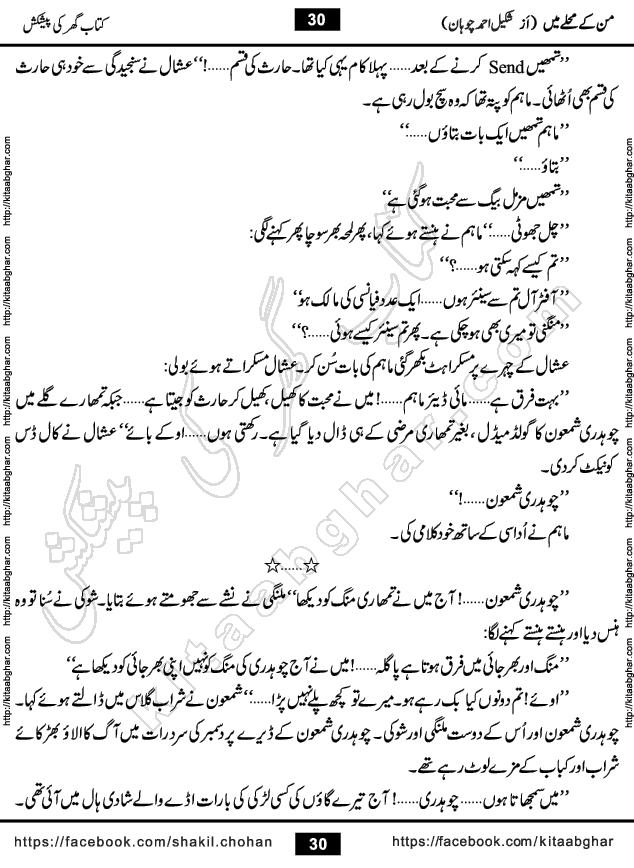 من کے محلے میں (از شکیل احمد چوہان)
30
کتاب گھر کی پیشکش
’’تمھیں Send کرنے کے بعد...... پہلا کام یہی کیا تھا۔ حارث کی قسم......!‘‘عشال نے سنجیدگی سے خود ہی حارث
کی قسم بھی اُٹھائی۔ ماہم کو پتہ تھا کہ وہ سچ بول رہی ہے۔
’’ماہم تمھیں ایک بات بتاؤں......‘‘
’’بتاؤ......‘‘
’’تمھیں مزمل بیگ سے محبت ہوگئی ہے‘‘
’’چل جھوٹی......‘‘ماہم نے ہنستے ہوئے کہا، پھر لمحہ بھر سوچا پھر کہنے لگی:
’’تم کیسے کہہ سکتی ہو......؟‘‘
’’آفٹر آل تم سے سینئر ہوں......ایک عدد فیانسی کی مالک ہو‘‘
’’منگنی تو میری بھی ہوچکی ہے۔ پھر تم سینئر کیسے ہوئی......؟‘‘
عشال کے چہرے پر مسکراہٹ بکھر گئی ماہم کی بات سُن کر۔ عشال مسکراتے ہوئے بولی:
’’بہت فرق ہے...... مائی ڈیئر ماہم......! میں نے محبت کا کھیل، کھیل کر حارث کو جیتا ہے...... جبکہ تمھارے گلے میں
چوہدری شمعون کا گولڈ میڈل، بغیر تمھاری مرضی کے ہی ڈال دیا گیا ہے۔ رکھتی ہوں......اوکے بائے‘‘ عشال نے کال ڈس
کونیکٹ کردی۔
’’چوہدری شمعون......!‘‘
ماہم نے اُداسی کے ساتھ خود کلامی کی۔
☆......☆
’’چوہدری شمعون......! آج میں نے تمھاری منگ کو دیکھا‘‘ملنگی نے نشے سے جھومتے ہوئے بتایا۔ شوکی نے سُنا تو وہ
ہنس دیا اور ہنستے ہنستے کہنے لگا:
’’منگ اور بھرجائی میں فرق ہوتا ہے پاگلہ......! میں نے آج چوہدری کی منگ کو نہیں اپنی بھرجائی کو دیکھا ہے‘‘
’’اوئے! تم دونوں کیا بک رہے ہو۔ میرے تو کچھ پلے نہیں پڑا......‘‘شمعون نے شراب گلاس میں ڈالتے ہوئے کہا۔
چوہدری شمعون اور اُس کے دوست ملنگی اور شوکی۔ چوہدری شمعون کے ڈیرے پر دسمبر کی سرد رات میں آگ کا الاؤ بھڑکائے
شراب اور کباب کے مزے لوٹ رہے تھے۔
’’میں سمجھاتا ہوں...... چوہدری......! آج تیرے گاؤں کی کسی لڑکی کی بارات اڈے والے شادی ہال میں آئی تھی۔
https://facebook.com/shakil.chohan
30
https://facebook.com/kitaabghar
http://kitaabghar.com http://kitaabghar.com http://kitaabghar.com http://kitaabghar.com http://kitaabghar.com http://kitaabghar.com
http://kitaabghar.com http://kitaabghar.com http://kitaabghar.com http://kitaabghar.com http://kitaabghar.com http://kitaabghar.com
کتاب گھر کی پیشکش
kitaabghar.com